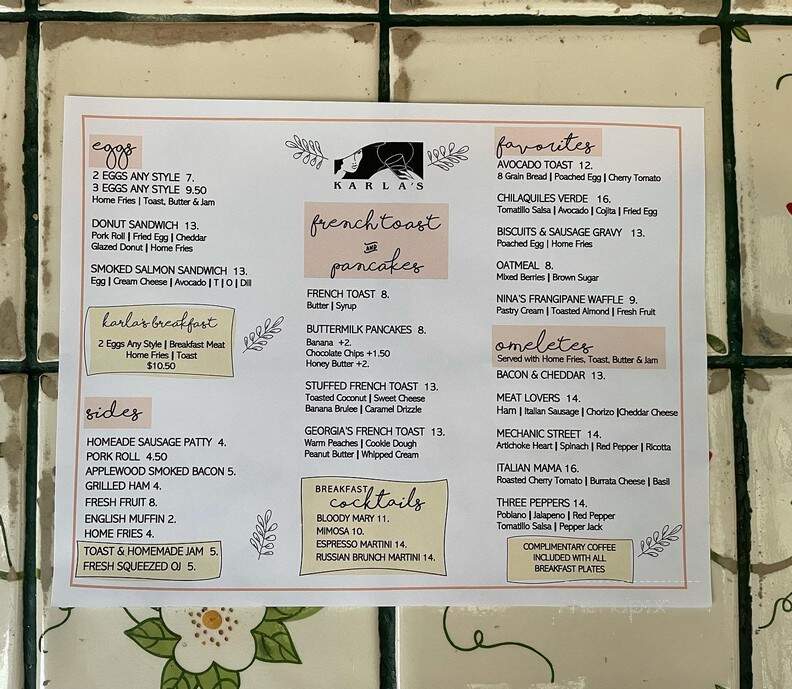 eggs
2 EGGS ANY STYLE 7.
3 EGGS ANY STYLE 9.50
Home Fries | Toast, Butter & Jam
DONUT SANDWICH 13.
Pork Roll | Fried Egg | Cheddar
Glazed Donut | Home Fries
SMOKED SALMON SANDWICH 13.
Egg | Cream Cheese | Avocado | T | O | Dill
karla's breakfast
2 Eggs Any Style | Breakfast Meat
Home Fries | Toast
$10.50
sides
HOMEADE SAUSAGE PATTY 4.
PORK ROLL 4.50
APPLEWOOD SMOKED BACON 5.
GRILLED HAM 4.
FRESH FRUIT 8.
ENGLISH MUFFIN 2.
HOME FRIES 4.
TOAST & HOMEMADE JAM 5.
FRESH SQUEEZED OJ 5.
KARLA'S
french toast
AND
pancakes
FRENCH TOAST 8.
Butter | Syrup
BUTTERMILK PANCAKES 8.
Banana +2.
Chocolate Chips +1.50
Honey Butter +2.
STUFFED FRENCH TOAST 13.
Toasted Coconut | Sweet Cheese
Banana Brulee | Caramel Drizzle
GEORGIA'S FRENCH TOAST 13.
Warm Peaches | Cookie Dough
Peanut Butter | Whipped Cream
BREAKFAST
cocktails
BLOODY MARY 11.
MIMOSA 10.
ESPRESSO MARTINI 14.
RUSSIAN BRUNCH MARTINI 14.
favorites
AVOCADO TOAST 12.
8 Grain Bread | Poached Egg | Cherry Tomato
CHILAQUILES VERDE 16.
Tomatillo Salsa | Avocado | Cojita | Fried Egg
BISCUITS & SAUSAGE GRAVY 13.
Poached Egg | Home Fries
OATMEAL 8.
Mixed Berries | Brown Sugar
NINA'S FRANGIPANE WAFFLE 9.
Pastry Cream | Toasted Almond | Fresh Fruit
omeletes
Served with Home Fries, Toast, Butter & Jam
BACON & CHEDDAR 13.
MEAT LOVERS 14.
Ham | Italian Sausage | Chorizo |Cheddar Cheese
MECHANIC STREET 14.
Artichoke Heart | Spinach | Red Pepper | Ricotta
ITALIAN MAMA 16.
Roasted Cherry Tomato | Burrata Cheese | Basil
THREE PEPPERS 14.
Poblano | Jalapeno | Red Pepper
Tomatillo Salsa | Pepper Jack
COMPLIMENTARY COFFEE
INCLUDED WITH ALL
BREAKFAST PLATES